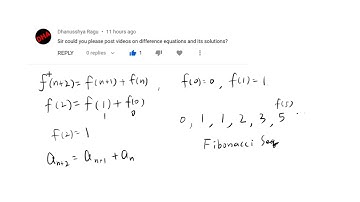 DHA
Dhanusshya Ragu • 11 hours ago
Sir could you please post videos on difference equations and its solutions?
REPLY 9 replies 1
f(n+2) = f(n+1) + f(n) , f(0)=0 , f(1)=1
f(2) = f(1) + f(0)
1 0
f(5)
0, 1, 1, 2, 3, 5 ...
f(2) = 1
Fibonacci Seq
a_{n+2} = a_{n+1} + a_n